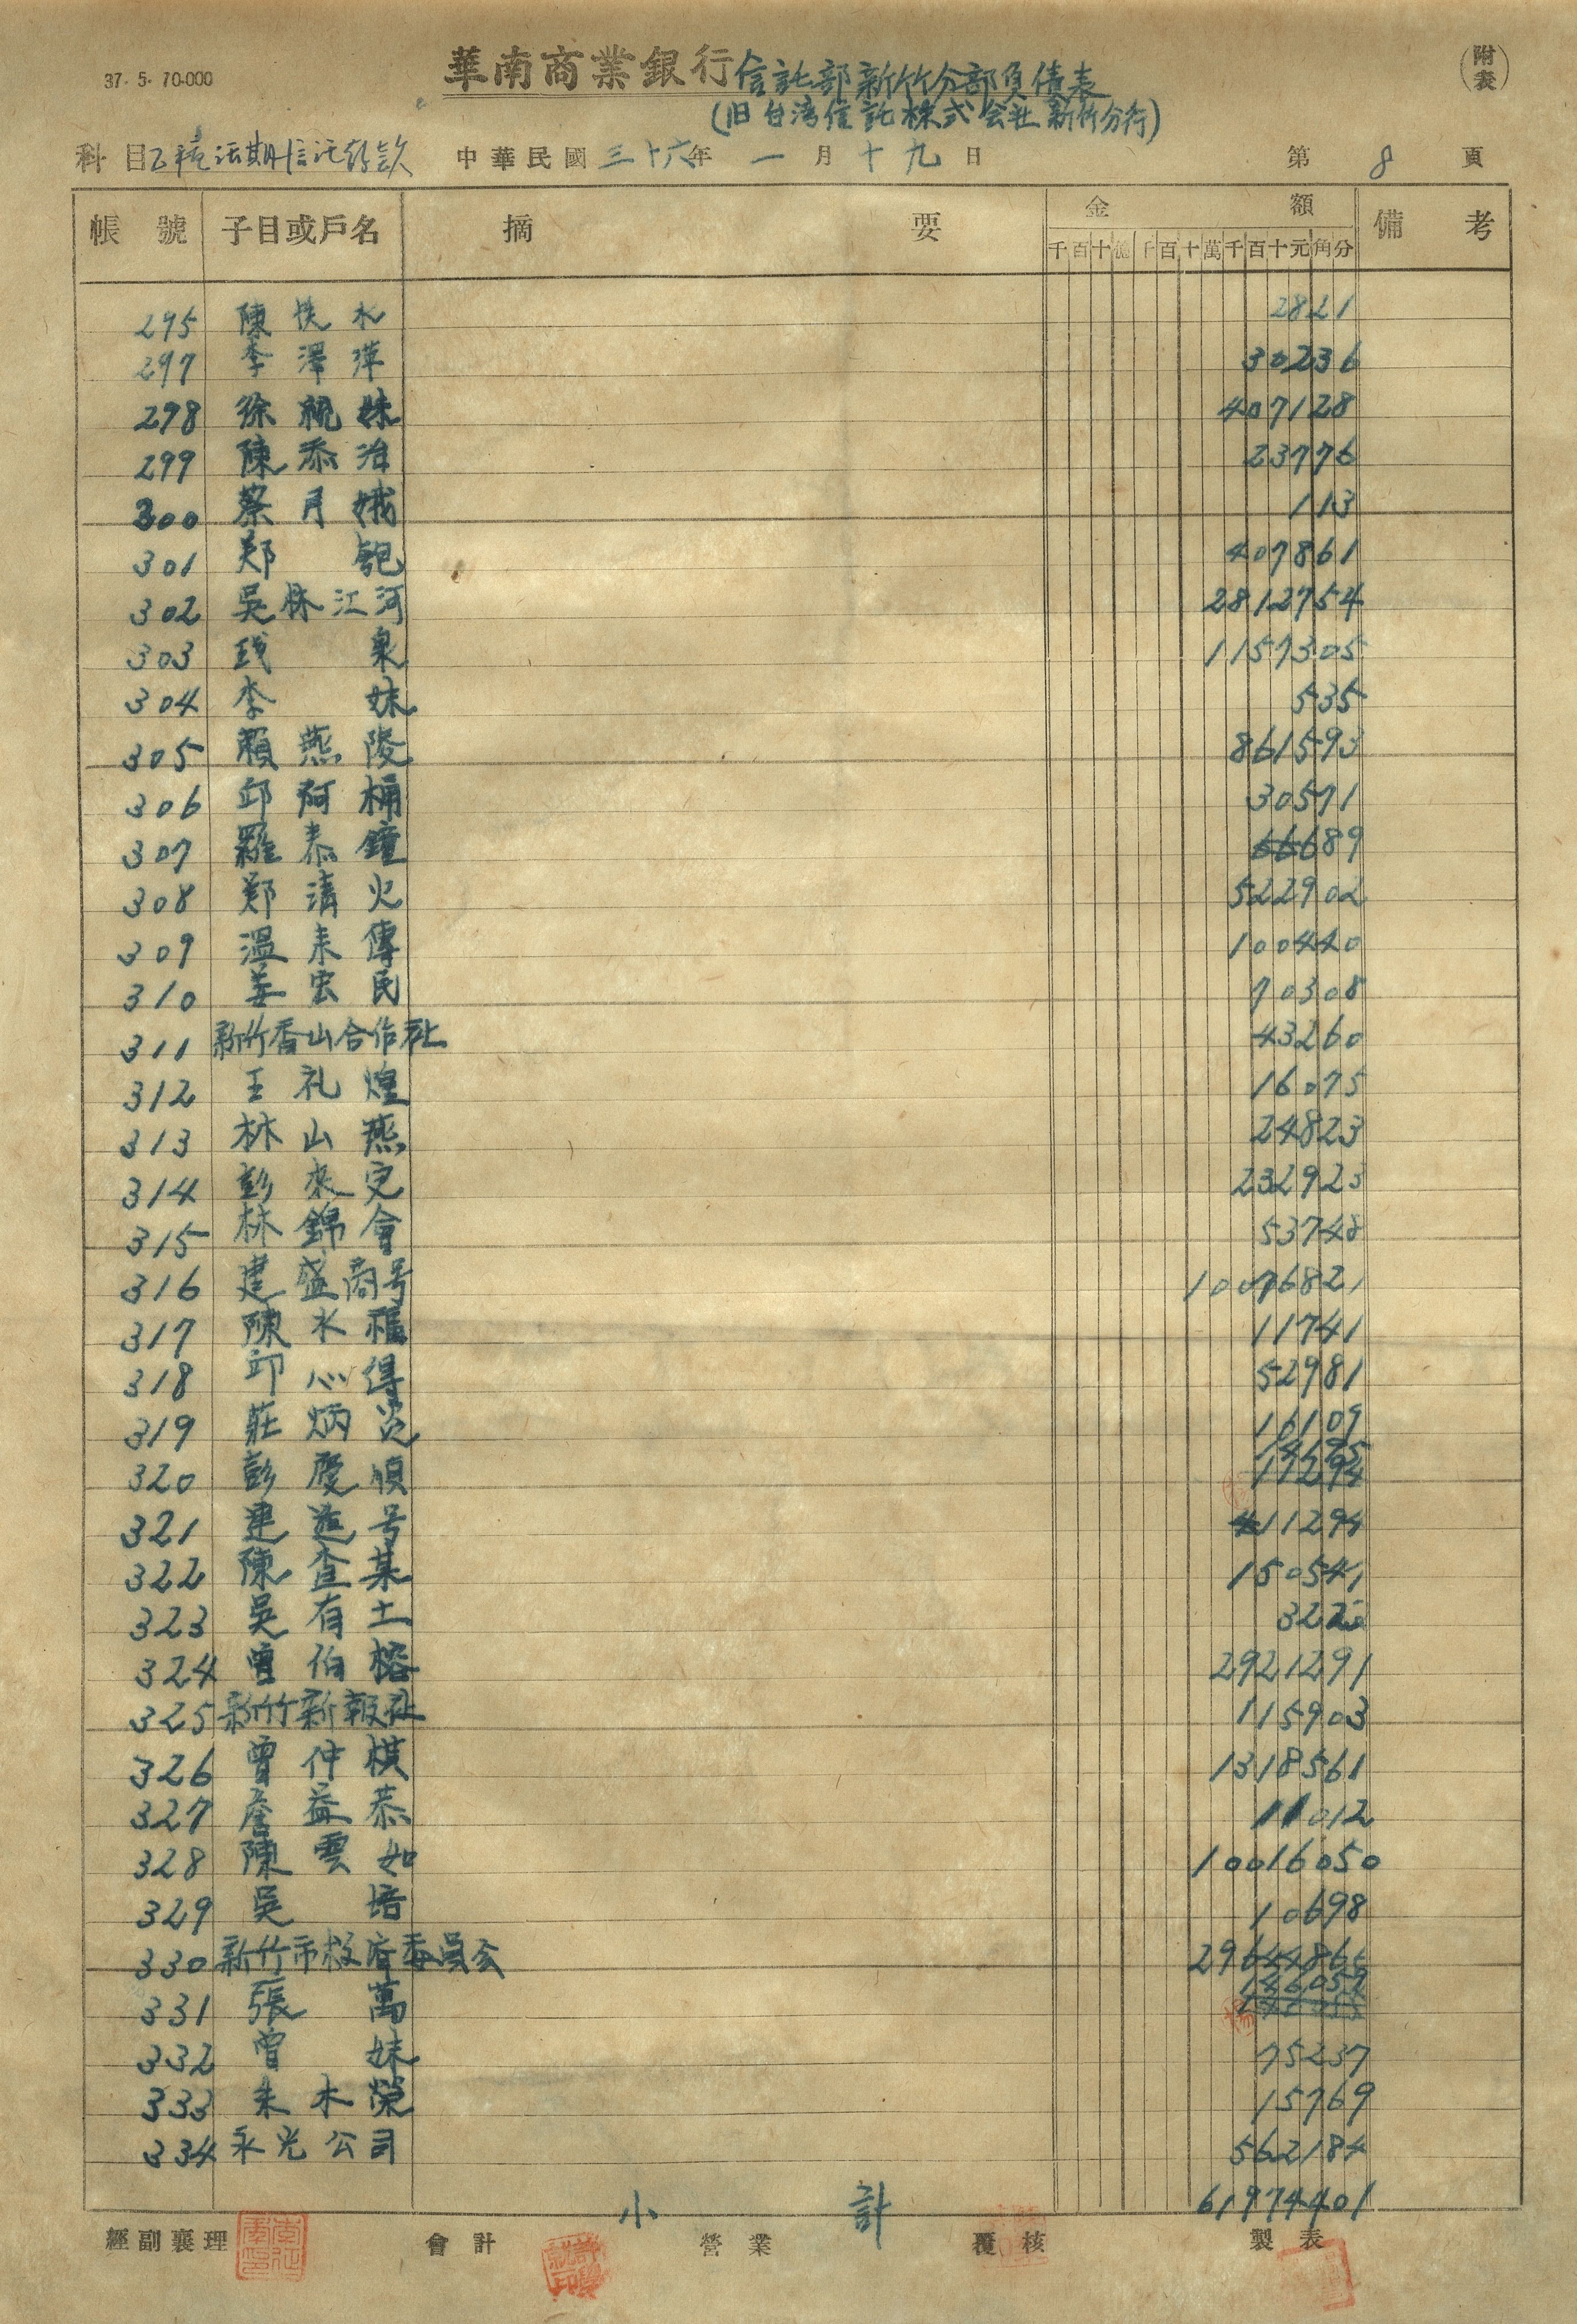 37. 5. 70.000
華南商業銀行信託部新竹分部負債表
(附表)
(旧台湾信託株式会社新竹分行)
科目乙種活期信託存款 中華民國三十六年一月十九日 第8頁
帳號 子目或戶名 摘要 金額 備考
千百十億千百十萬千百十元角分
295 陳扶水 2821
297 李澤萍 30236
298 徐視妹 407128
299 陳添治 23776
300 蔡月娥 113
301 鄭 匏 407861
302 吳林江河 2812754
303 錢 泉 1157305
304 李 妹 535
305 賴燕陵 861593
306 邱阿桶 30571
307 羅泰鐘 66689
308 鄭清火 522902
309 溫來傳 100440
310 姜宏民 70308
311 新竹香山合作社 43260
312 王礼煌 16075
313 林山燕 24823
314 彭來定 232923
315 林錦會 53748
316 建盛商号 10076821
317 陳水福 11741
318 邱心得 52981
319 莊炳 16109
320 彭慶順
321 建造号 411294
322 陳查某 150541
323 吳有土
324 曾伯榕 2921291
325 新竹新報社 115903
326 曾仲棋 1318561
327 詹益恭 11012
328 陳雲如 10016050
329 吳 培 10698
330 新竹市校府委員会 29644866
331 張 萬 146057
332 曾 妹 75237
333 朱木榮 15769
334 永光公司 562184
小計 61974401
經副襄理 會計 營業 覆核 製表